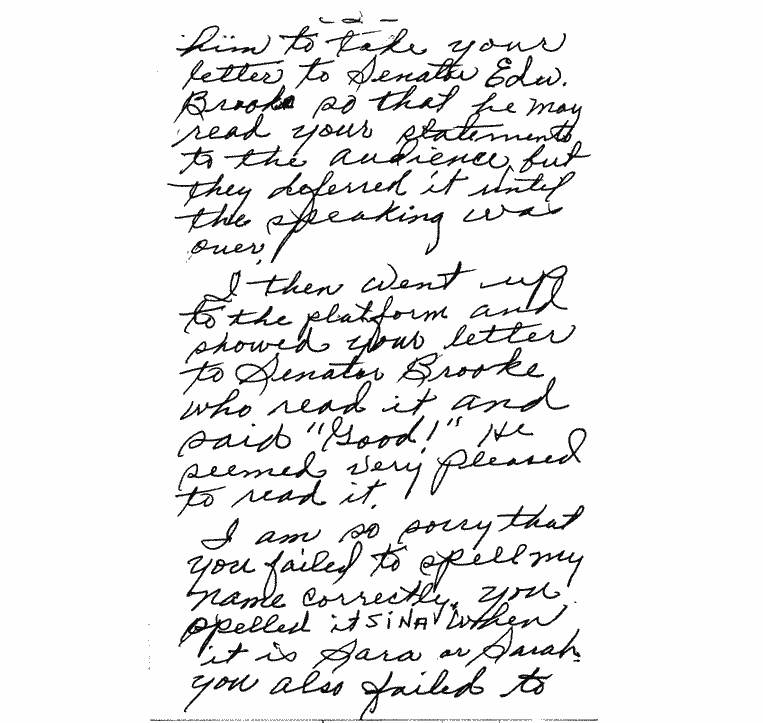 - 2 -
him to take your
letter to Senator Edw.
Brooke so that he may
read your statements
to the audience, but
they deferred it until
the speaking was
over.
I then went up
to the platform and
showed your letter
to Senator Brooke
who read it and
said "Good!" He
seemed very pleased
to read it.
I am so sorry that
you failed to spell my
name correctly, you
spelled it SiNA when
it is Sara or Sarah.
you also failed to